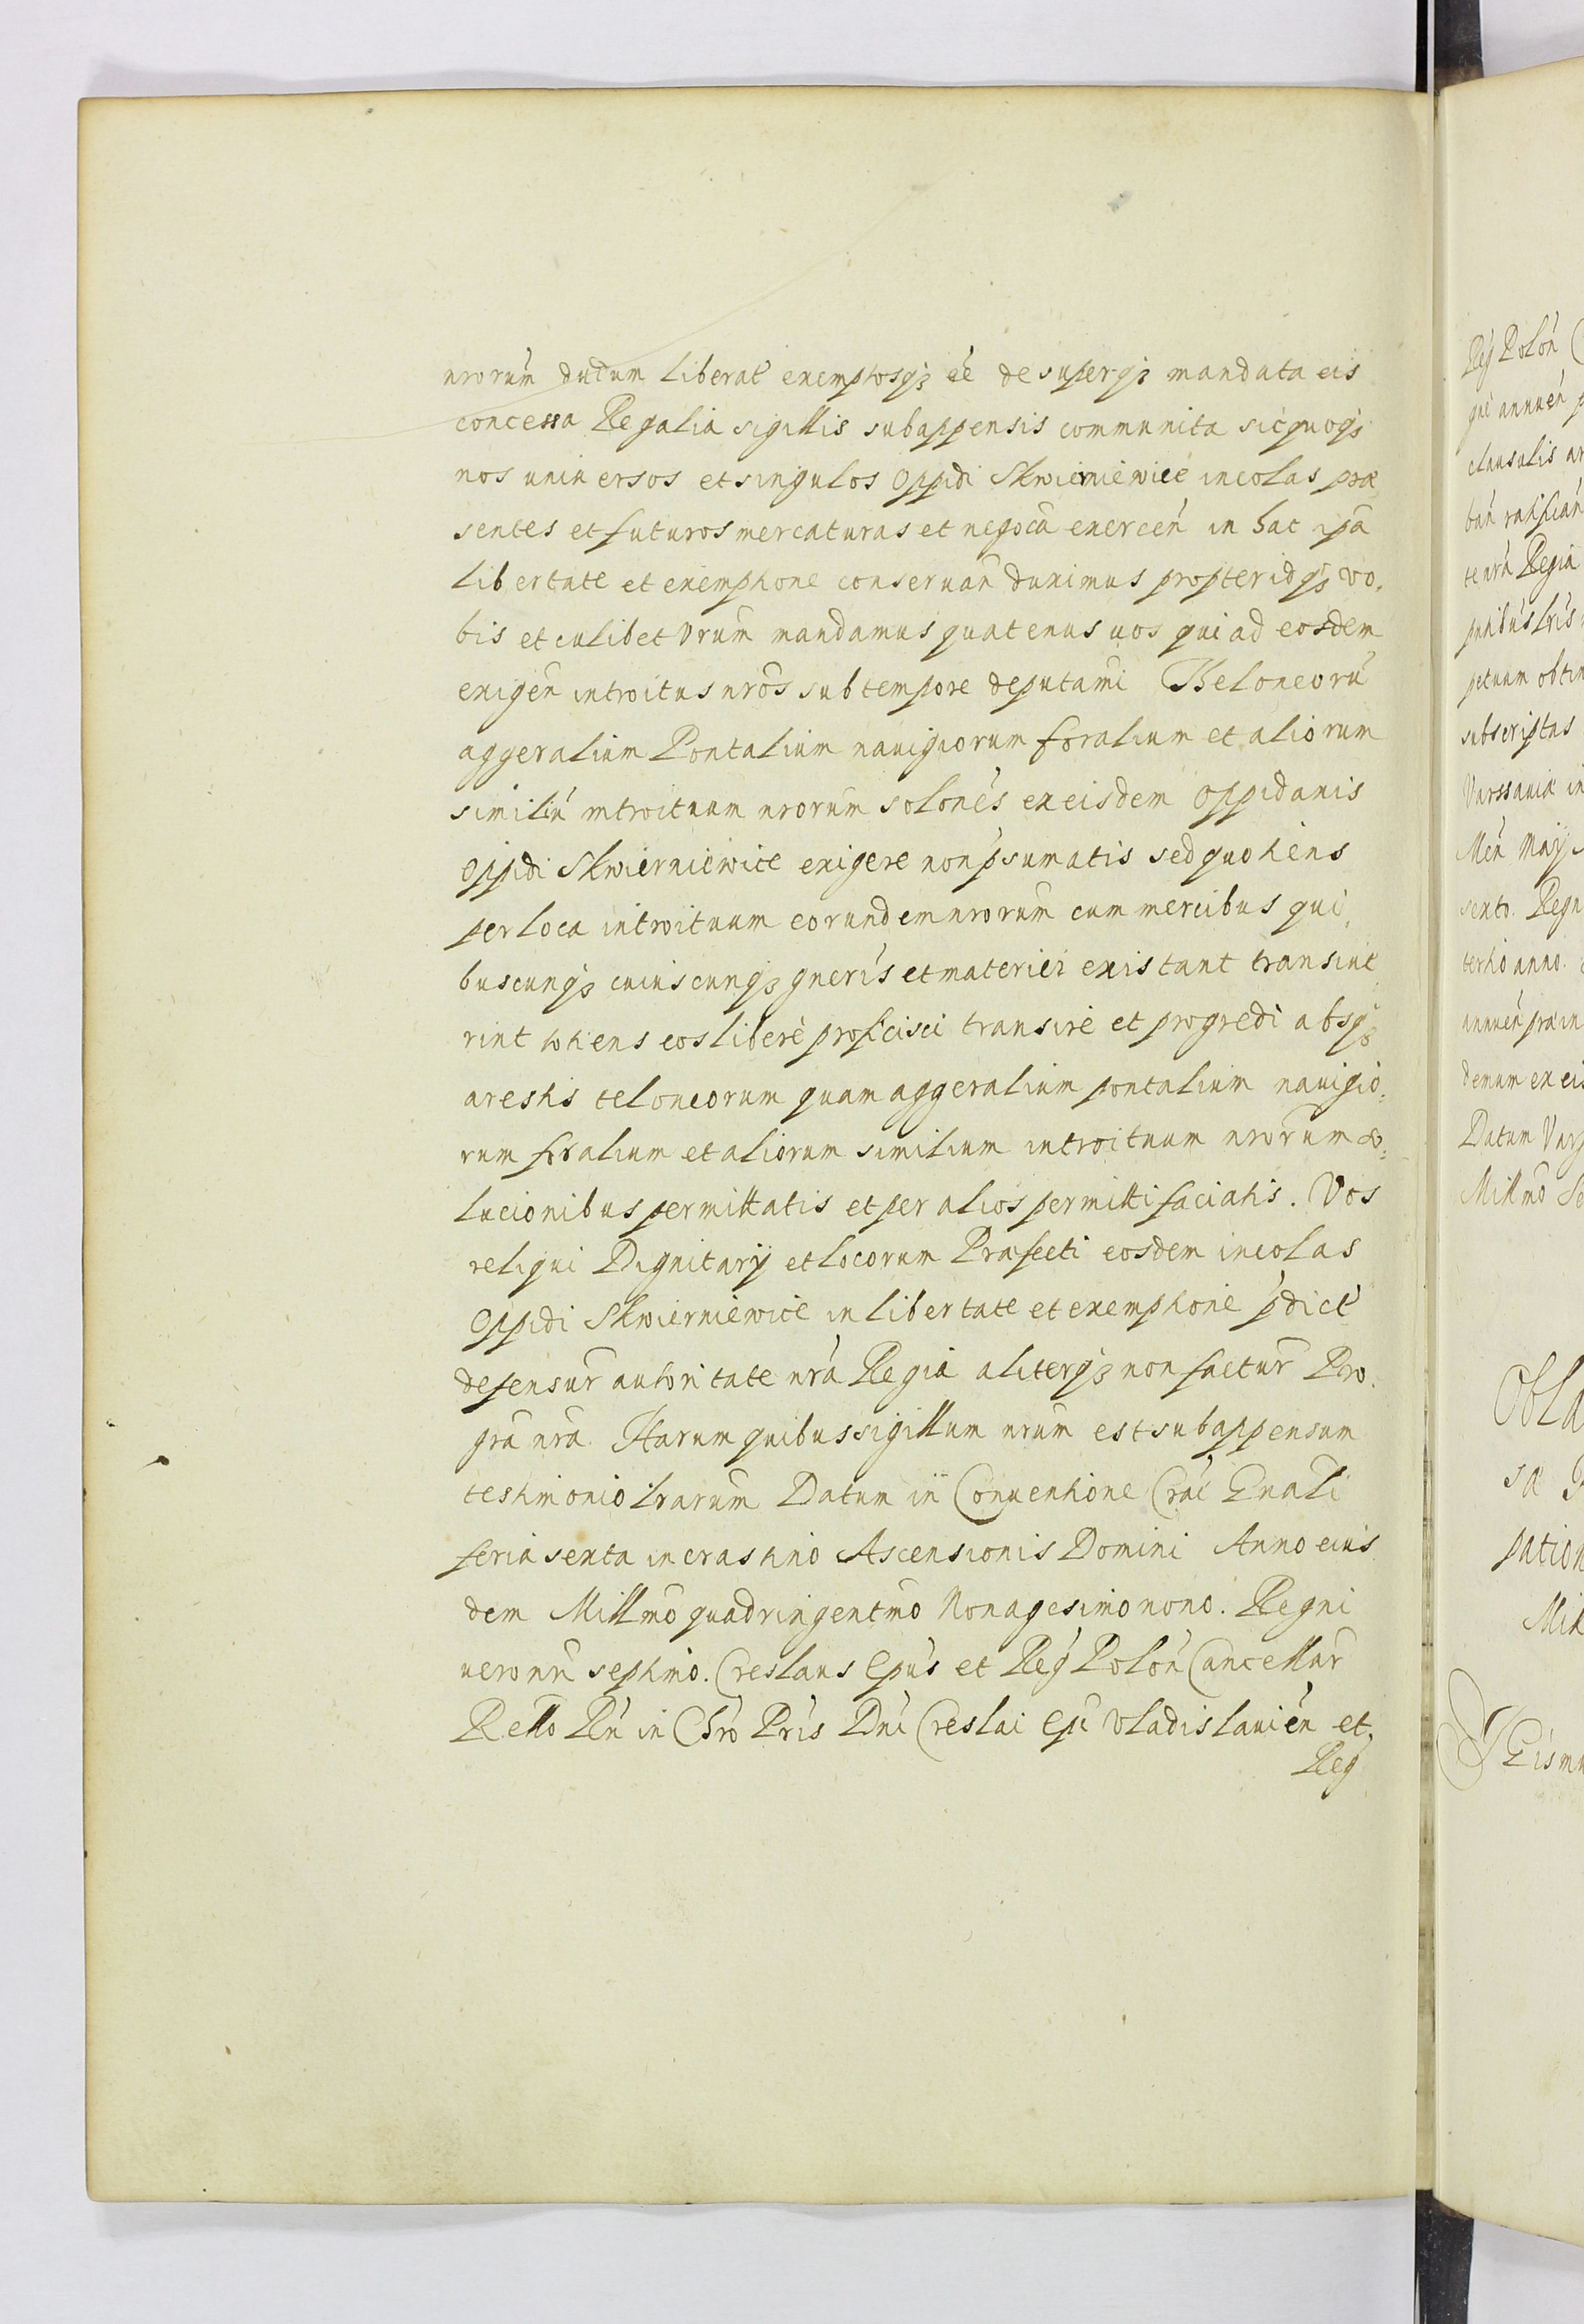 nrorum dudum liberat exemptosq3 eé desuperq3 mandata eis
concessa Regalia sigillis subappensis communita sicquoq3
nos universos et singulos Oppidi Skwierniewice incolas præ
sentes et futuros mercaturas et negocia exercen in hac ipsa
libertate et exemptione conseruan duximus propteridq3 vo,
bis et cuilibet vrum mandamus quatenus uos qui ad eosdem
exigen introitus nros sub tempore deputami Theloneoru
aggeralium Pontalium nauigiorum foralium et aliorum
similiu introituum nrorum solones ex eisdem oppidanis
Oppidi Skwierniewice exigere non psumatis sed quotiens
per loca introituum eorundem nrorum cum mercibus qui,
buscunq3 cuiuscunq3 gneris et materiei existant transiue
rint totiens eos libere proficisci transire et progredi absq3
arestis teloneorum quam aggeralium pontalium nauigio,
rum foralium et aliorum similium introituum nrorum so,
lucionibus permittatis et per alios permitti faciatis. Vos
reliqui Dignitarij et locorum Præfecti eosdem incolas
Oppidi Skwierniewice in libertate et exemptione pdict
defensur autoritate nra Regia aliterq3 non factur Pro
gra nra. Harum quibus sigillum nrum est subappensum
testimonio lrarum Datum in Conuentione Crac Gnali
feria sexta in crastino Ascensionis Domini Anno eius
dem Millmo quadringentmo Nonagesimo nono. Regni
uero nri septimo. Creslaus Epus et Reg Polon Cancellar
Retto Rn in Chro Pris Dni Creslai Epi Vladislauien et
Reg
Reg Polon
gni annuen
clausulis
ban ratifican
te nra Regia
pntibus lris
petuum obtin
subscriptus
Varssauiæ in
Men Maij
sexto. Regn
tertio anno.
annuen præin
demum ex eis
Datum Vars
Millmo
Obla
sæ
pation
Mik